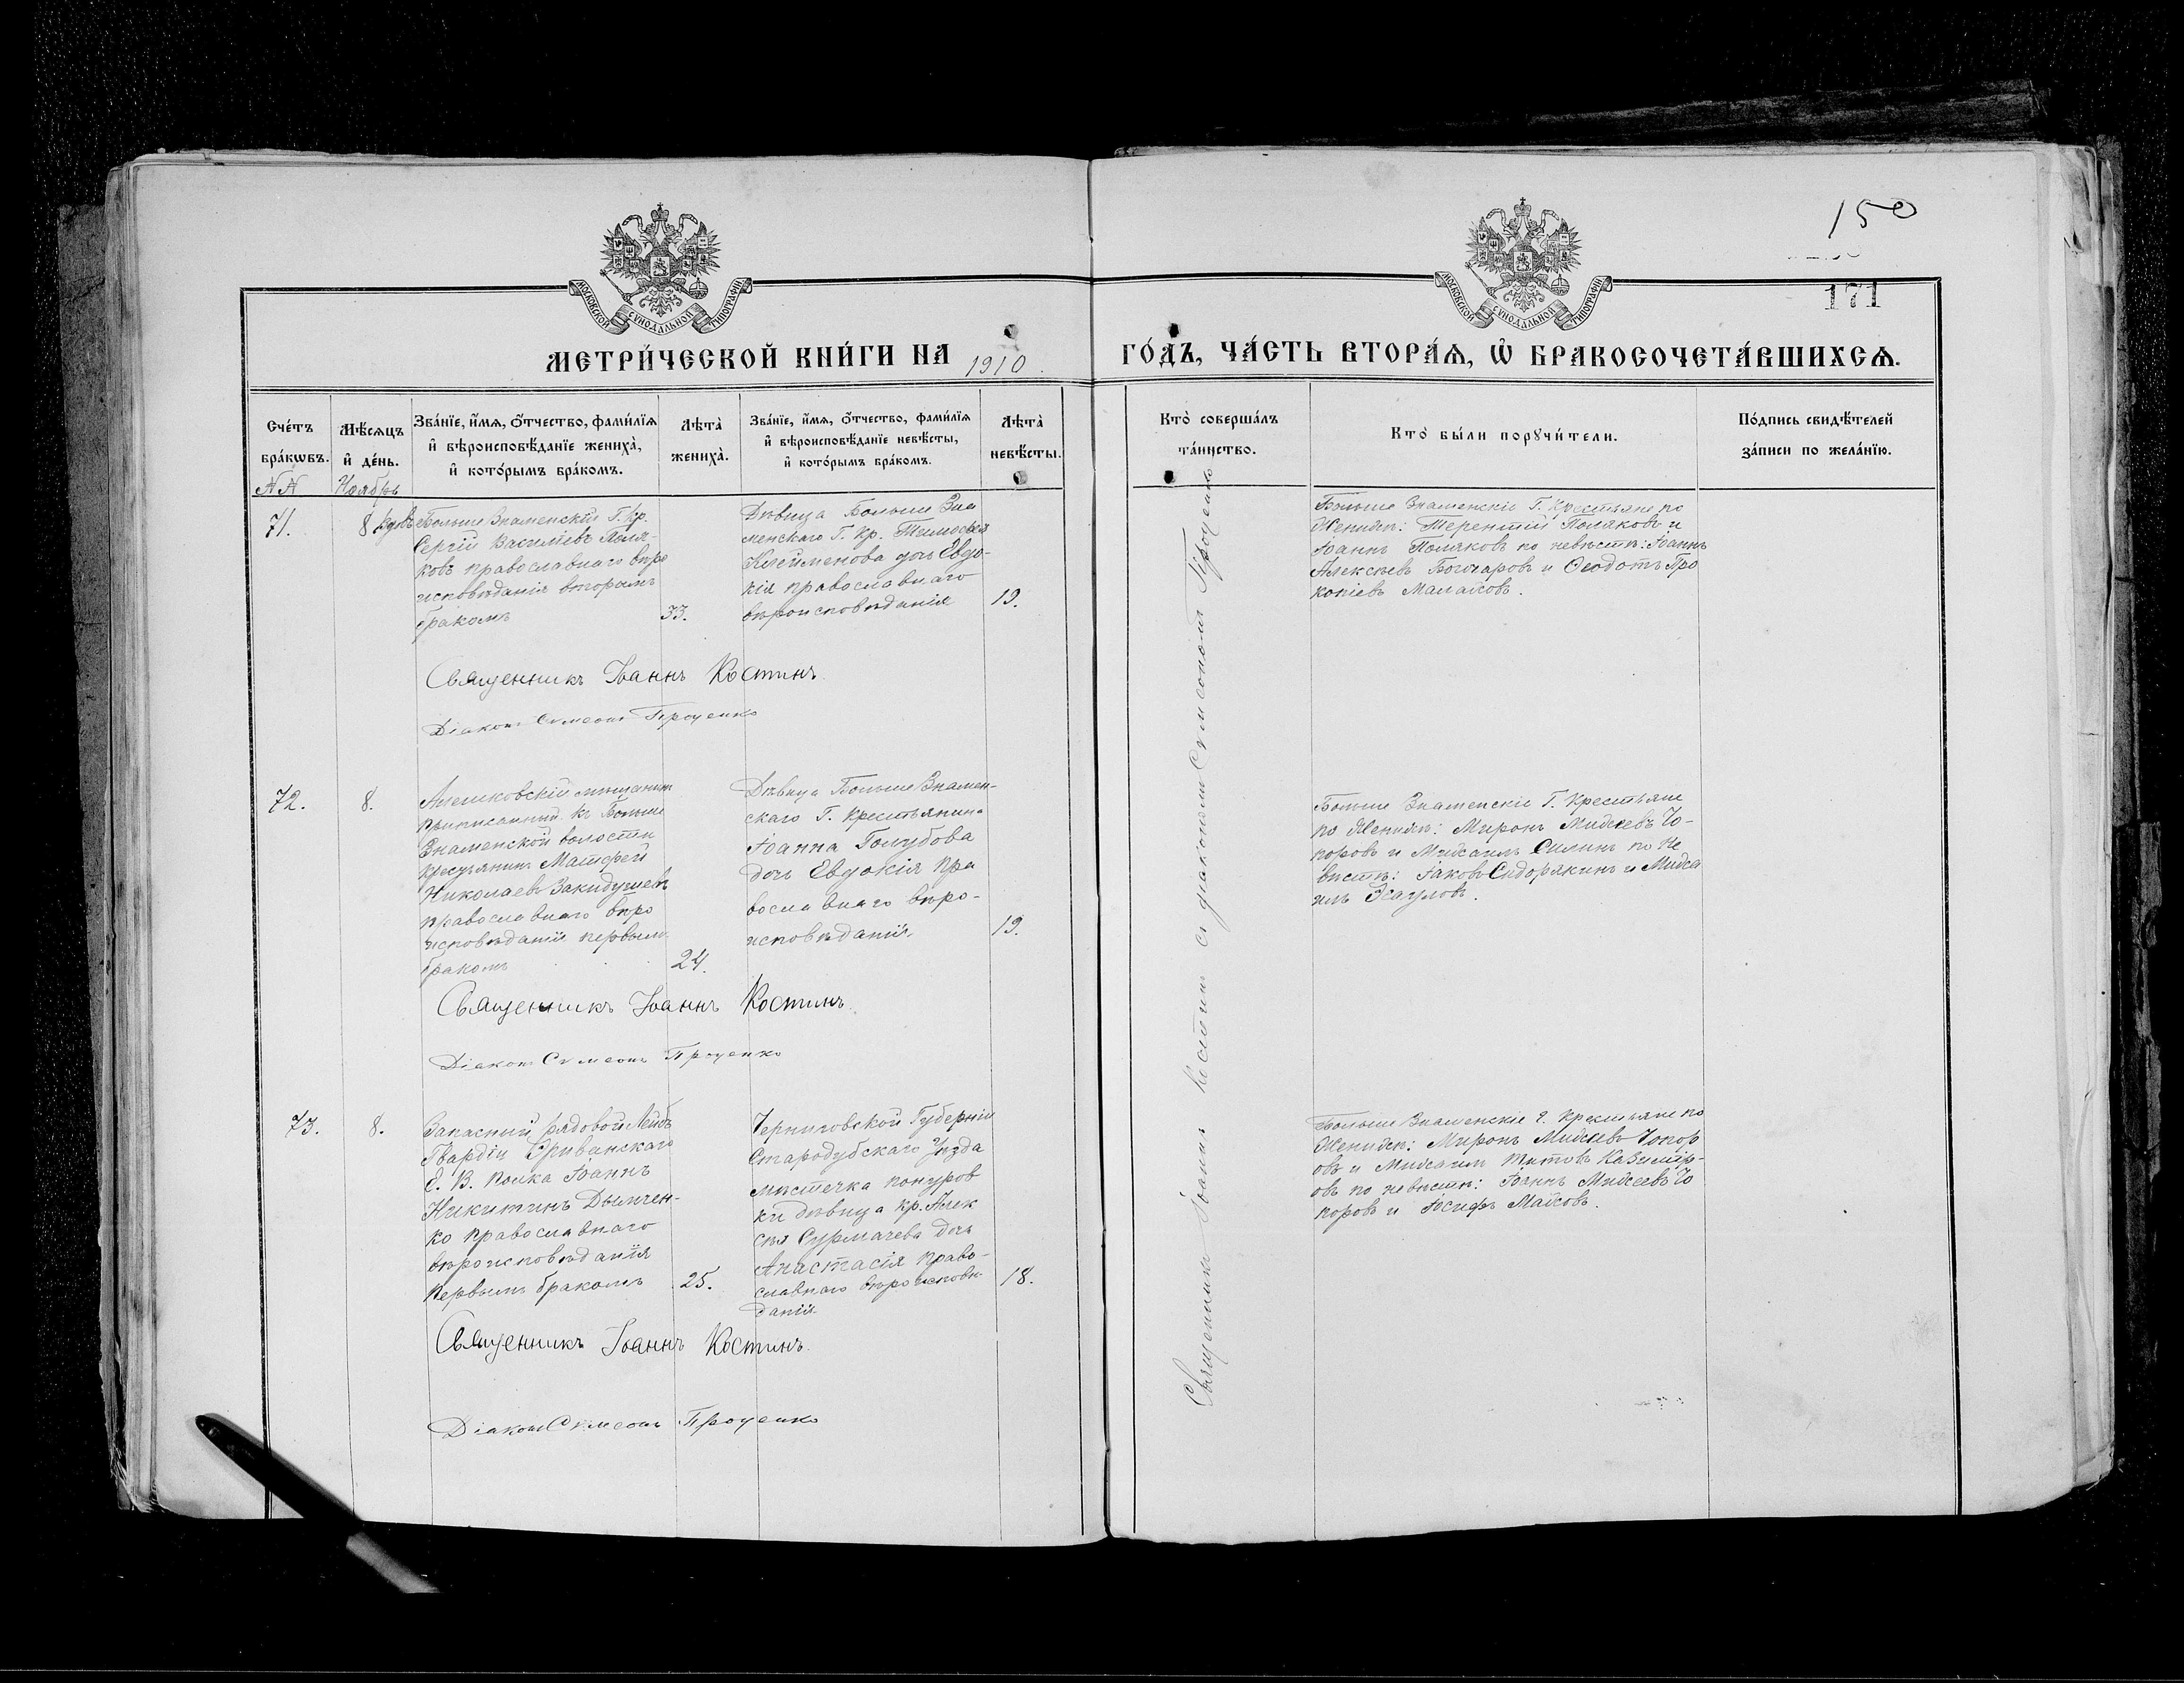 150
171
МОСКОВСКОЙ СУНОДАЛЬНОЙ ТИПОГРАФІИ
МОСКОВСКОЙ СУНОДАЛЬНОЙ ТИПОГРАФІИ
МЕТРИ́ЧЕСКОЙ КНИ́ГИ НА 1910
ГО́ДЪ, ЧА́СТЬ ВТОРА́Ѧ, Ѡ҆ БРАКОСОЧЕТА́ВШИХСѦ.
Сче́тъ
бра́кѡвъ.
Мѣ́сѧцъ
и҆ де́нь.
Зва́нїе, и҆́мѧ, ѻ҆́тчество, фами́лїѧ
и҆ вѣроисповѣ́данїе жениха̀,
и҆ кото́рымъ бра́комъ.
Лѣта̀
жениха̀.
Зва́нїе, и҆́мѧ, ѻ҆́тчество, фами́лїѧ
и҆ вѣроисповѣ́данїе невѣ́сты,
и҆ кото́рымъ бра́комъ.
Лѣта̀
невѣ́сты.
Кто̀ соверша́лъ
та́инство.
Кто̀ бы́ли порꙋчи́тели.
По́дпись свидѣ́телей
за́писи по жела́нїю.
NN
Ноябрь
71.
8
Больше Знаменскій Г. Кр.
Сергій Василіевъ Поля-
ковъ православнаго вѣро
исповѣданія вторымъ
бракомъ
33.
Дѣвица Больше Зна
менскаго Г. Кр. Тимофей
Клейменова дочь Евдо-
кія православнаго
вѣроисповѣданія
19.
Больше Знаменскіе Г. Крестьяне по
Женихѣ: Терентій Поляковъ и
Іоаннъ Поляковъ по невѣстѣ: Іоаннъ
Алексѣевъ Бочкаровъ и Ѳеодотъ Про
копіевъ Малаховъ.
Священникъ Іоаннъ Костинъ
Діаконъ Сѵмеонъ Проценко
72.
8.
Алешковскій мѣщанинъ
приписанный къ Больше
Знаменской волости
крестьянинъ Матфей
Николаевъ Закидушевъ
православнаго вѣро
исповѣданія первымъ
бракомъ
24.
Дѣвица Больше Знамен-
скаго Г. Крестьянина
Іоанна Голубова
дочь Евдокія пра
вославнаго вѣро-
исповѣданія
19.
Больше Знаменскіе Г. Крестьяне
по Женихѣ: Миронъ Михеевъ Чо-
поровъ и Михаилъ Силинъ по не
вѣстѣ: Іаковъ Сидорякинъ и Миха
илъ Эсауловъ.
Священникъ Іоаннъ Костинъ
Діаконъ Сѵмеонъ Проценко
73.
8.
Запасный рядовой Лейбъ
Гвардіи Эриванскаго
Е. В. полка Іоаннъ
Никитинъ Дымчен-
ко православнаго
вѣроисповѣданія
первымъ бракомъ
25.
Черниговской Губерніи
Стародубскаго Уѣзда
мѣстечка понуров
ки дѣвица кр. Алек
сѣя Сурмачева дочь
Анастасія право-
славнаго вѣроисповѣ-
данія
18.
Больше Знаменскіе Г. Крестьяне по
Женихѣ: Миронъ Михеевъ Чопор
овъ и Михаилъ Титовъ Казимір-
овъ по невѣстѣ: Іоаннъ Михеевъ Чо
поровъ и Іосифъ Маховъ.
Священникъ Іоаннъ Костинъ
Діаконъ Сѵмеонъ Проценко
Священникъ Іоаннъ Костинъ съ діакономъ Сѵмеономъ Проценко